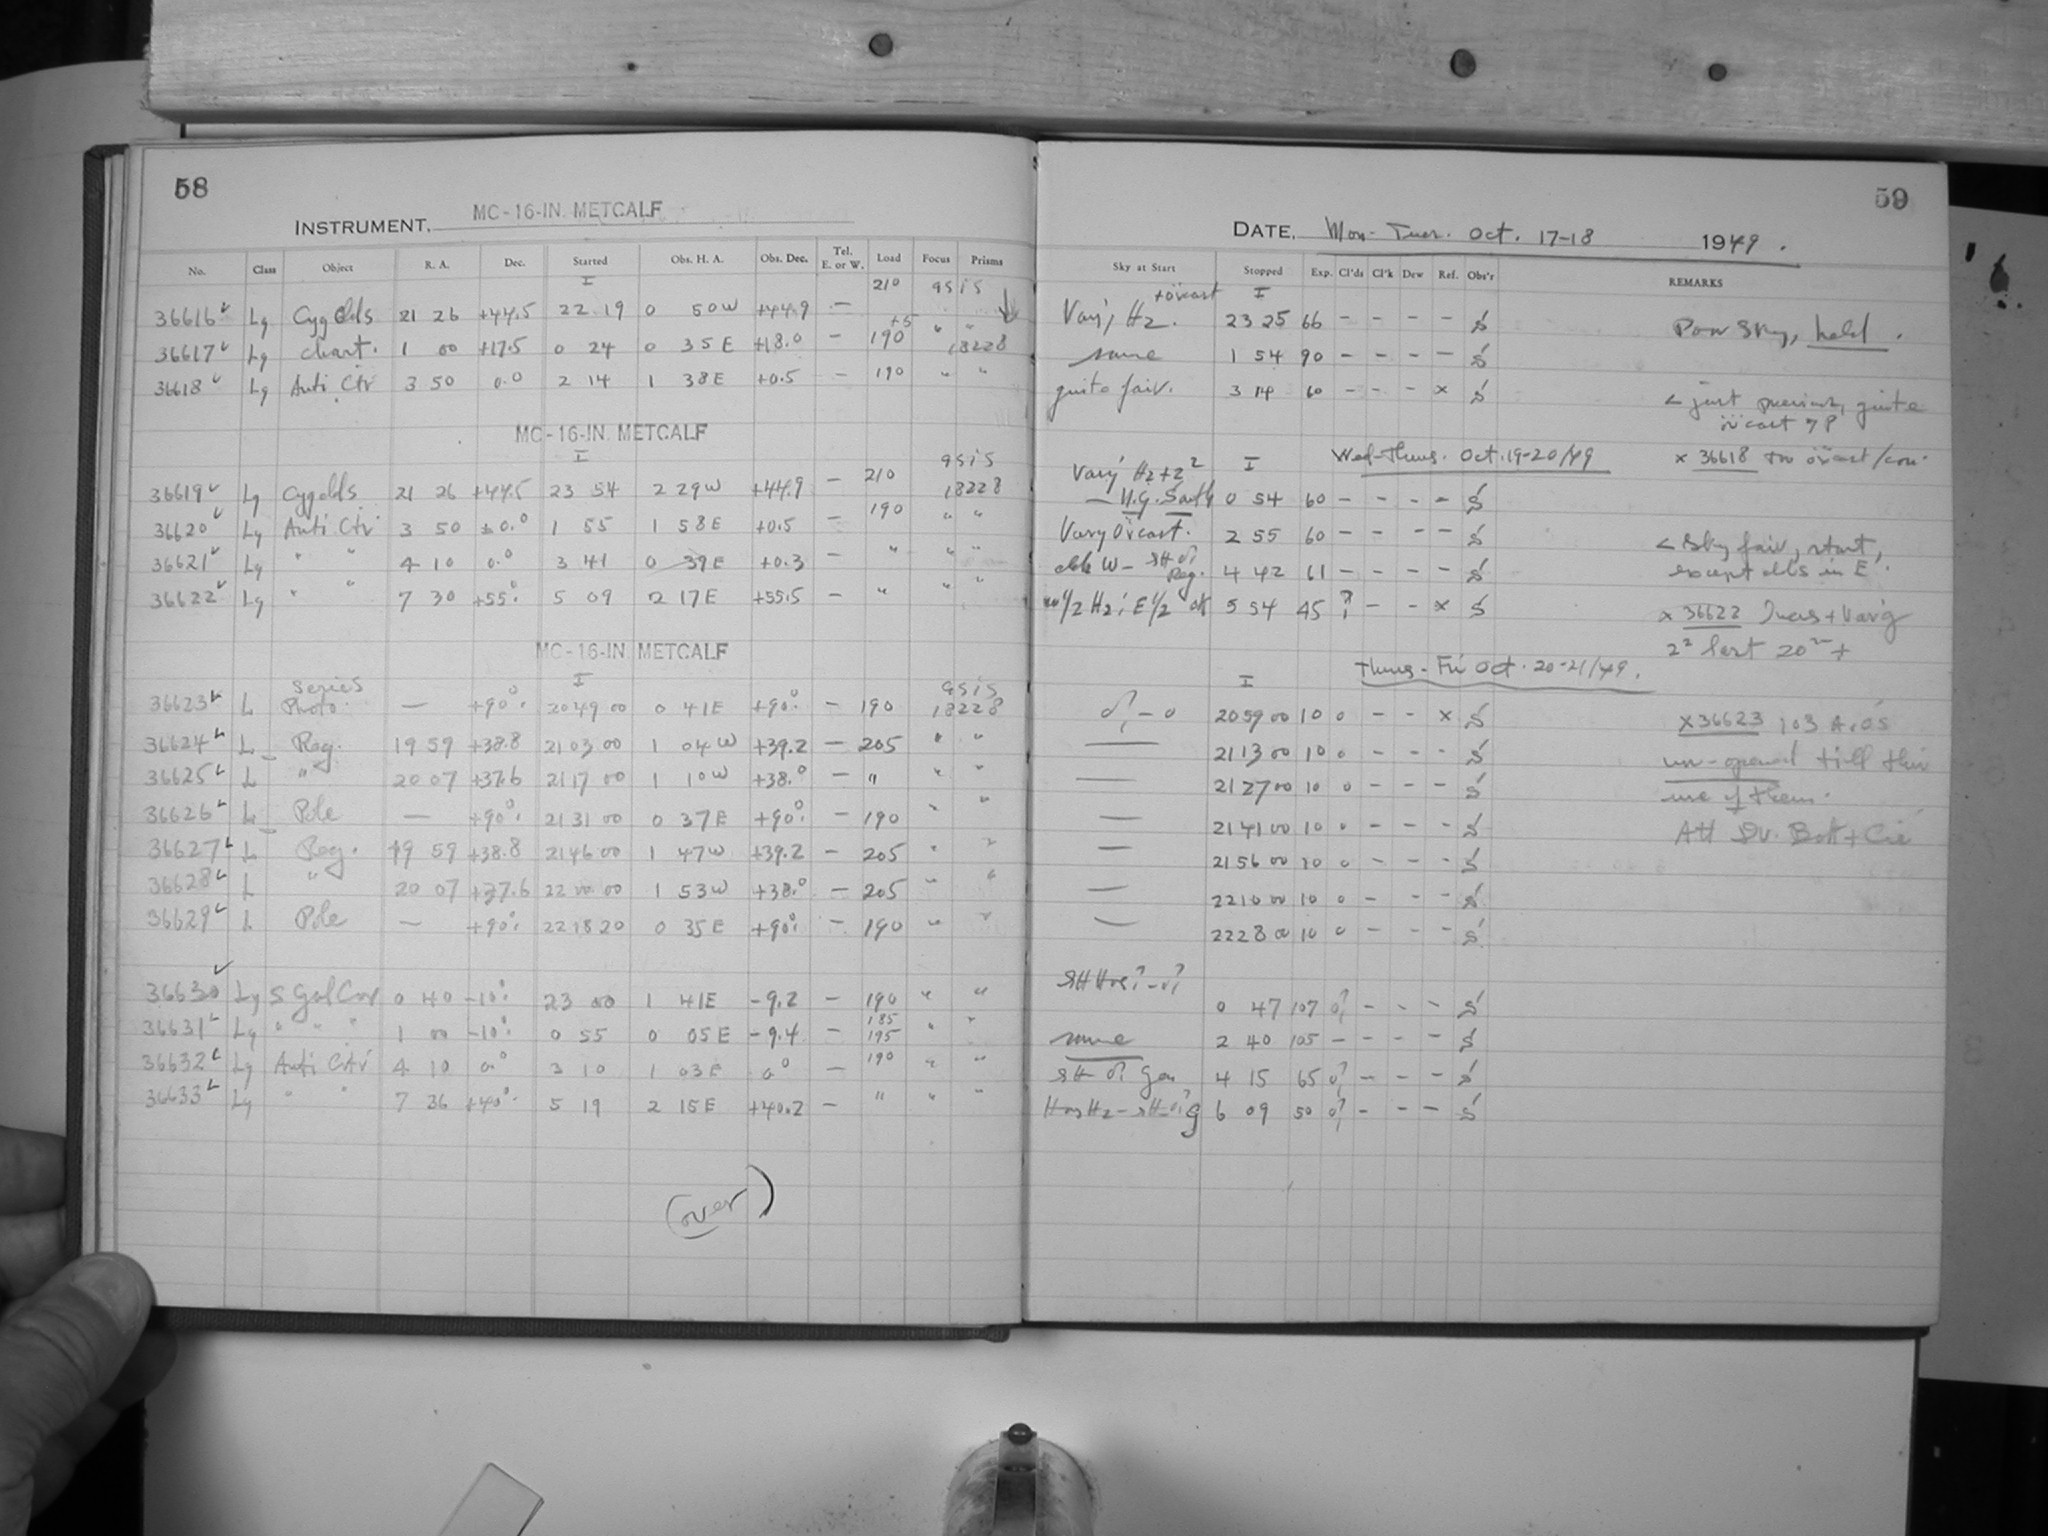 58
INSTRUMENT, MC-16-IN. METCALF
No. Class Object R. A. Dec. Started Obs. H. A. Obs. Dec. Tel. E. or W. Load Focus Prisms
I 210 9515
36616 Lg Cyg Clds 21 26 +44.5 22 19 0 50W +44.9 –
36617 Lg chart. 1 00 +17.5 0 24 0 35E +18.0 – 190 +5 " " 18228
36618 Lg Anti Ctr 3 50 0.0 2 14 1 38E +0.5 – 190 " "
MC-16-IN. METCALF
I 9515
36619 Lg Cyg clds 21 26 +44.5 23 54 2 29W +44.9 – 210 18228
36620 Lg Anti Ctr 3 50 ±0.0 1 55 1 58E +0.5 – 190 " "
36621 Lg " " 4 10 0.0 3 41 0 39E +0.3 – " " "
36622 Lg " 7 30 +55° 5 09 2 17E +55.5 – " " "
MC-16-IN. METCALF
Series I 9515
36623 L Photo. — +90° 20 49 00 0 41E +90° – 190 18228
36624 L Reg. 19 59 +38.8 21 03 00 1 04W +39.2 – 205 " "
36625 L " 20 07 +37.6 21 17 00 1 10W +38.0 – " " "
36626 L Pole — +90° 21 31 00 0 37E +90° – 190 " "
36627 L Reg. 19 59 +38.8 21 46 00 1 47W +39.2 – 205 " "
36628 L " 20 07 +37.6 22 00 00 1 53W +38.0 – 205 " "
36629 L Pole — +90° 22 18 20 0 35E +90° – 190 " "
36630 Lg S Gal Cav 0 40 -10° 23 00 1 41E -9.2 – 190 " "
36631 Lg " " " 1 00 -10° 0 55 0 05E -9.4 – 185 195 " "
36632 Lg Anti Ctr 4 10 0° 3 10 1 03E 0° – 190 " "
36633 Lg " " 7 36 +40° 5 19 2 15E +40.2 – " " "
(over)
59
DATE, Mon-Tues. Oct. 17-18 1949.
Sky at Start Stopped Exp. Cl'ds Cl'k Drw Ref. Obs'r REMARKS
Vary, H2. I 23 25 66 – – – – S Poor Sky, held.
same 1 54 90 – – – – S
quite fair. 3 14 60 – – – x S < just previous, quite
Wed-Thurs. Oct. 19-20/49 x 36618
Vary H2+2² I
– N.G. South 0 54 60 – – – – S
Vary 2 55 60 – – – – S < Sky fair, start,
4 42 61 – – – – S except clds in E.
W½ H2; E½ ok 5 54 45 ? – – x S x 36622
Thurs-Fri Oct. 20-21/49.
I
20 59 00 10 0 – – x S x36623 103 A.O's
— 21 13 00 10 0 – – – S un-opened till this
— 21 27 00 10 0 – – – S use of them.
— 21 41 00 10 0 – – – S
— 21 56 00 10 0 – – – S
— 22 10 00 10 0 – – – S
— 22 28 00 10 0 – – – S
0 47 107 0? – – – S
same 2 40 105 – – – – S
4 15 65 0? – – – S
6 09 50 0? – – – S